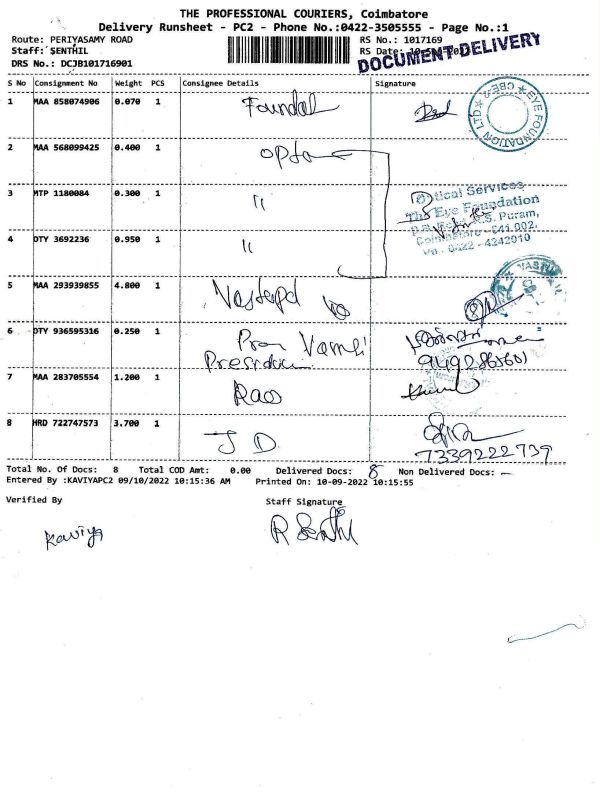 THE PROFESSIONAL COURIERS, Coimbatore
Delivery Runsheet - PC2 - Phone No.:0422-3505555 - Page No.:1
Route: PERIYASAMY ROAD
RS No.: 1017169
Staff: SENTHIL
RS Date:
DOCUMENT DELIVERY
DRS No.: DCJB101716901
S No Consignment No Weight PCS Consignee Details Signature
1 MAA 858074906 0.070 1
EYE FOUNDATION LTD
CBE
2 MAA 568099425 0.400 1 opto
3 MTP 1180084 0.300 1 "
Optical Services
The Eye Foundation
Puram,
Coimbatore - 641 002.
0422 - 4242010
4 DTY 3692236 0.950 1 "
5 MAA 293939855 4.800 1
6 DTY 936595316 0.250 1
7 MAA 283705554 1.200 1 Rao
8 HRD 722747573 3.700 1 J D
7339222739
Total No. Of Docs: 8 Total COD Amt: 0.00 Delivered Docs: 8 Non Delivered Docs: —
Entered By :KAVIYAPC2 09/10/2022 10:15:36 AM Printed On: 10-09-2022 10:15:55
Verified By Staff Signature
Kaviya
R Senthil